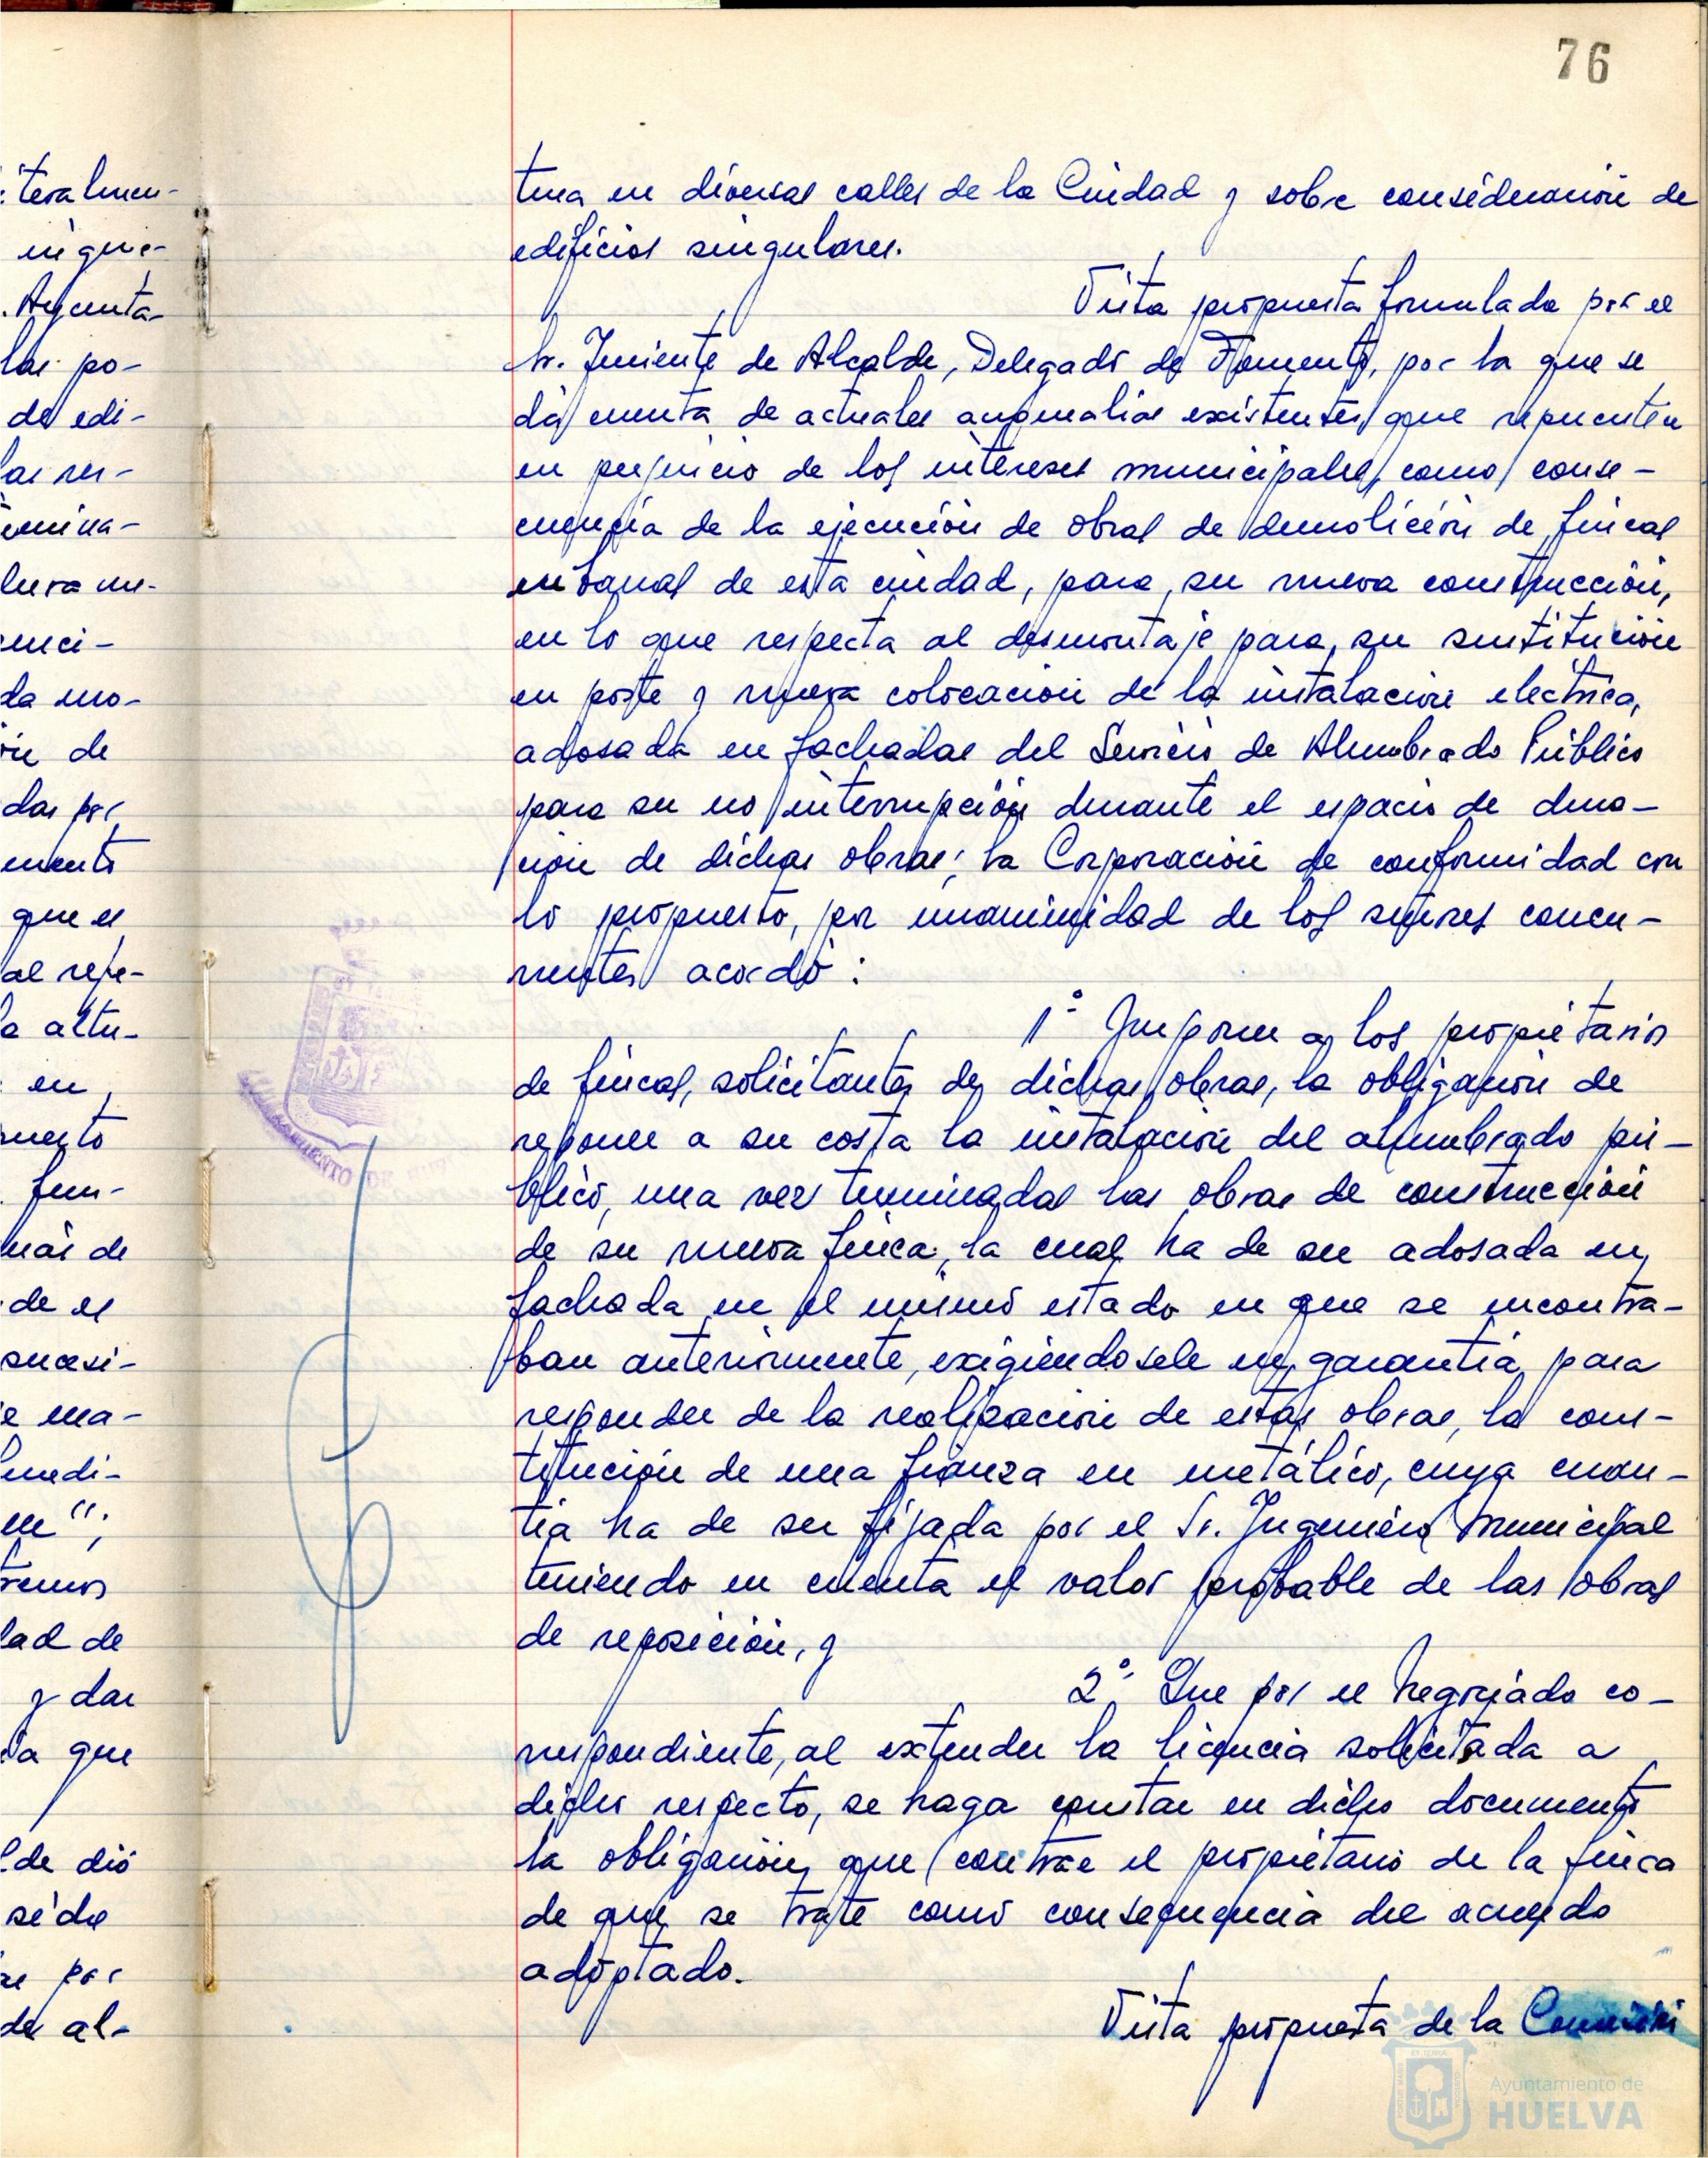 76
iteralmen-
in que-
. Ayunta-
las po-
de edi-
las res-
omina-
lura mu-
enci-
da mo-
ón de
das por
mento
que el
al repe-
la altu-
en
puesto
fun-
más de
de el
sucesi-
e ma-
medi-
en";
tremos
dad de
y dar
ia que
lde dió
se dé
por
de al-
tura en diversas calles de la Ciudad y sobre consideración de
edificios singulares.
Vista propuesta formulada por el
Sr. Teniente de Alcalde, Delegado de Fomento, por la que se
dá cuenta de actuales anomalías existentes que repercuten
en perjuicio de los intereses municipales, como conse-
cuencia de la ejecución de obras de demolición de fincas
urbanas de esta ciudad, para su nueva construcción,
en lo que respecta al desmontaje para su sustitución
en poste y nueva colocación de la instalación eléctrica,
adosada en fachadas del Servicio de Alumbrado Público
para su no interrupción durante el espacio de dura-
ción de dichas obras; la Corporación de conformidad con
lo propuesto, por unanimidad de los señores concu-
rrentes acordó:
1º Imponer a los propietarios
de fincas, solicitantes de dichas obras, la obligación de
reponer a su costa la instalación del alumbrado pú-
blico, una vez terminadas las obras de construcción
de su nueva finca, la cual ha de ser adosada en
fachada en el mismo estado en que se encontra-
ban anteriormente, exigiéndosele en garantía para
responder de la realización de estas obras, la cons-
titución de una fianza en metálico, cuya cuan-
tía ha de ser fijada por el Sr. Ingeniero Municipal
teniendo en cuenta el valor probable de las obras
de reposición, y
2º Que por el Negociado co-
rrespondiente, al extender la licencia solicitada a
dicho respecto, se haga constar en dicho documento
la obligación que contrae el propietario de la finca
de que se trate como consecuencia del acuerdo
adoptado.
Vista propuesta de la Comisión
AYUNTAMIENTO DE
Ayuntamiento de
HUELVA